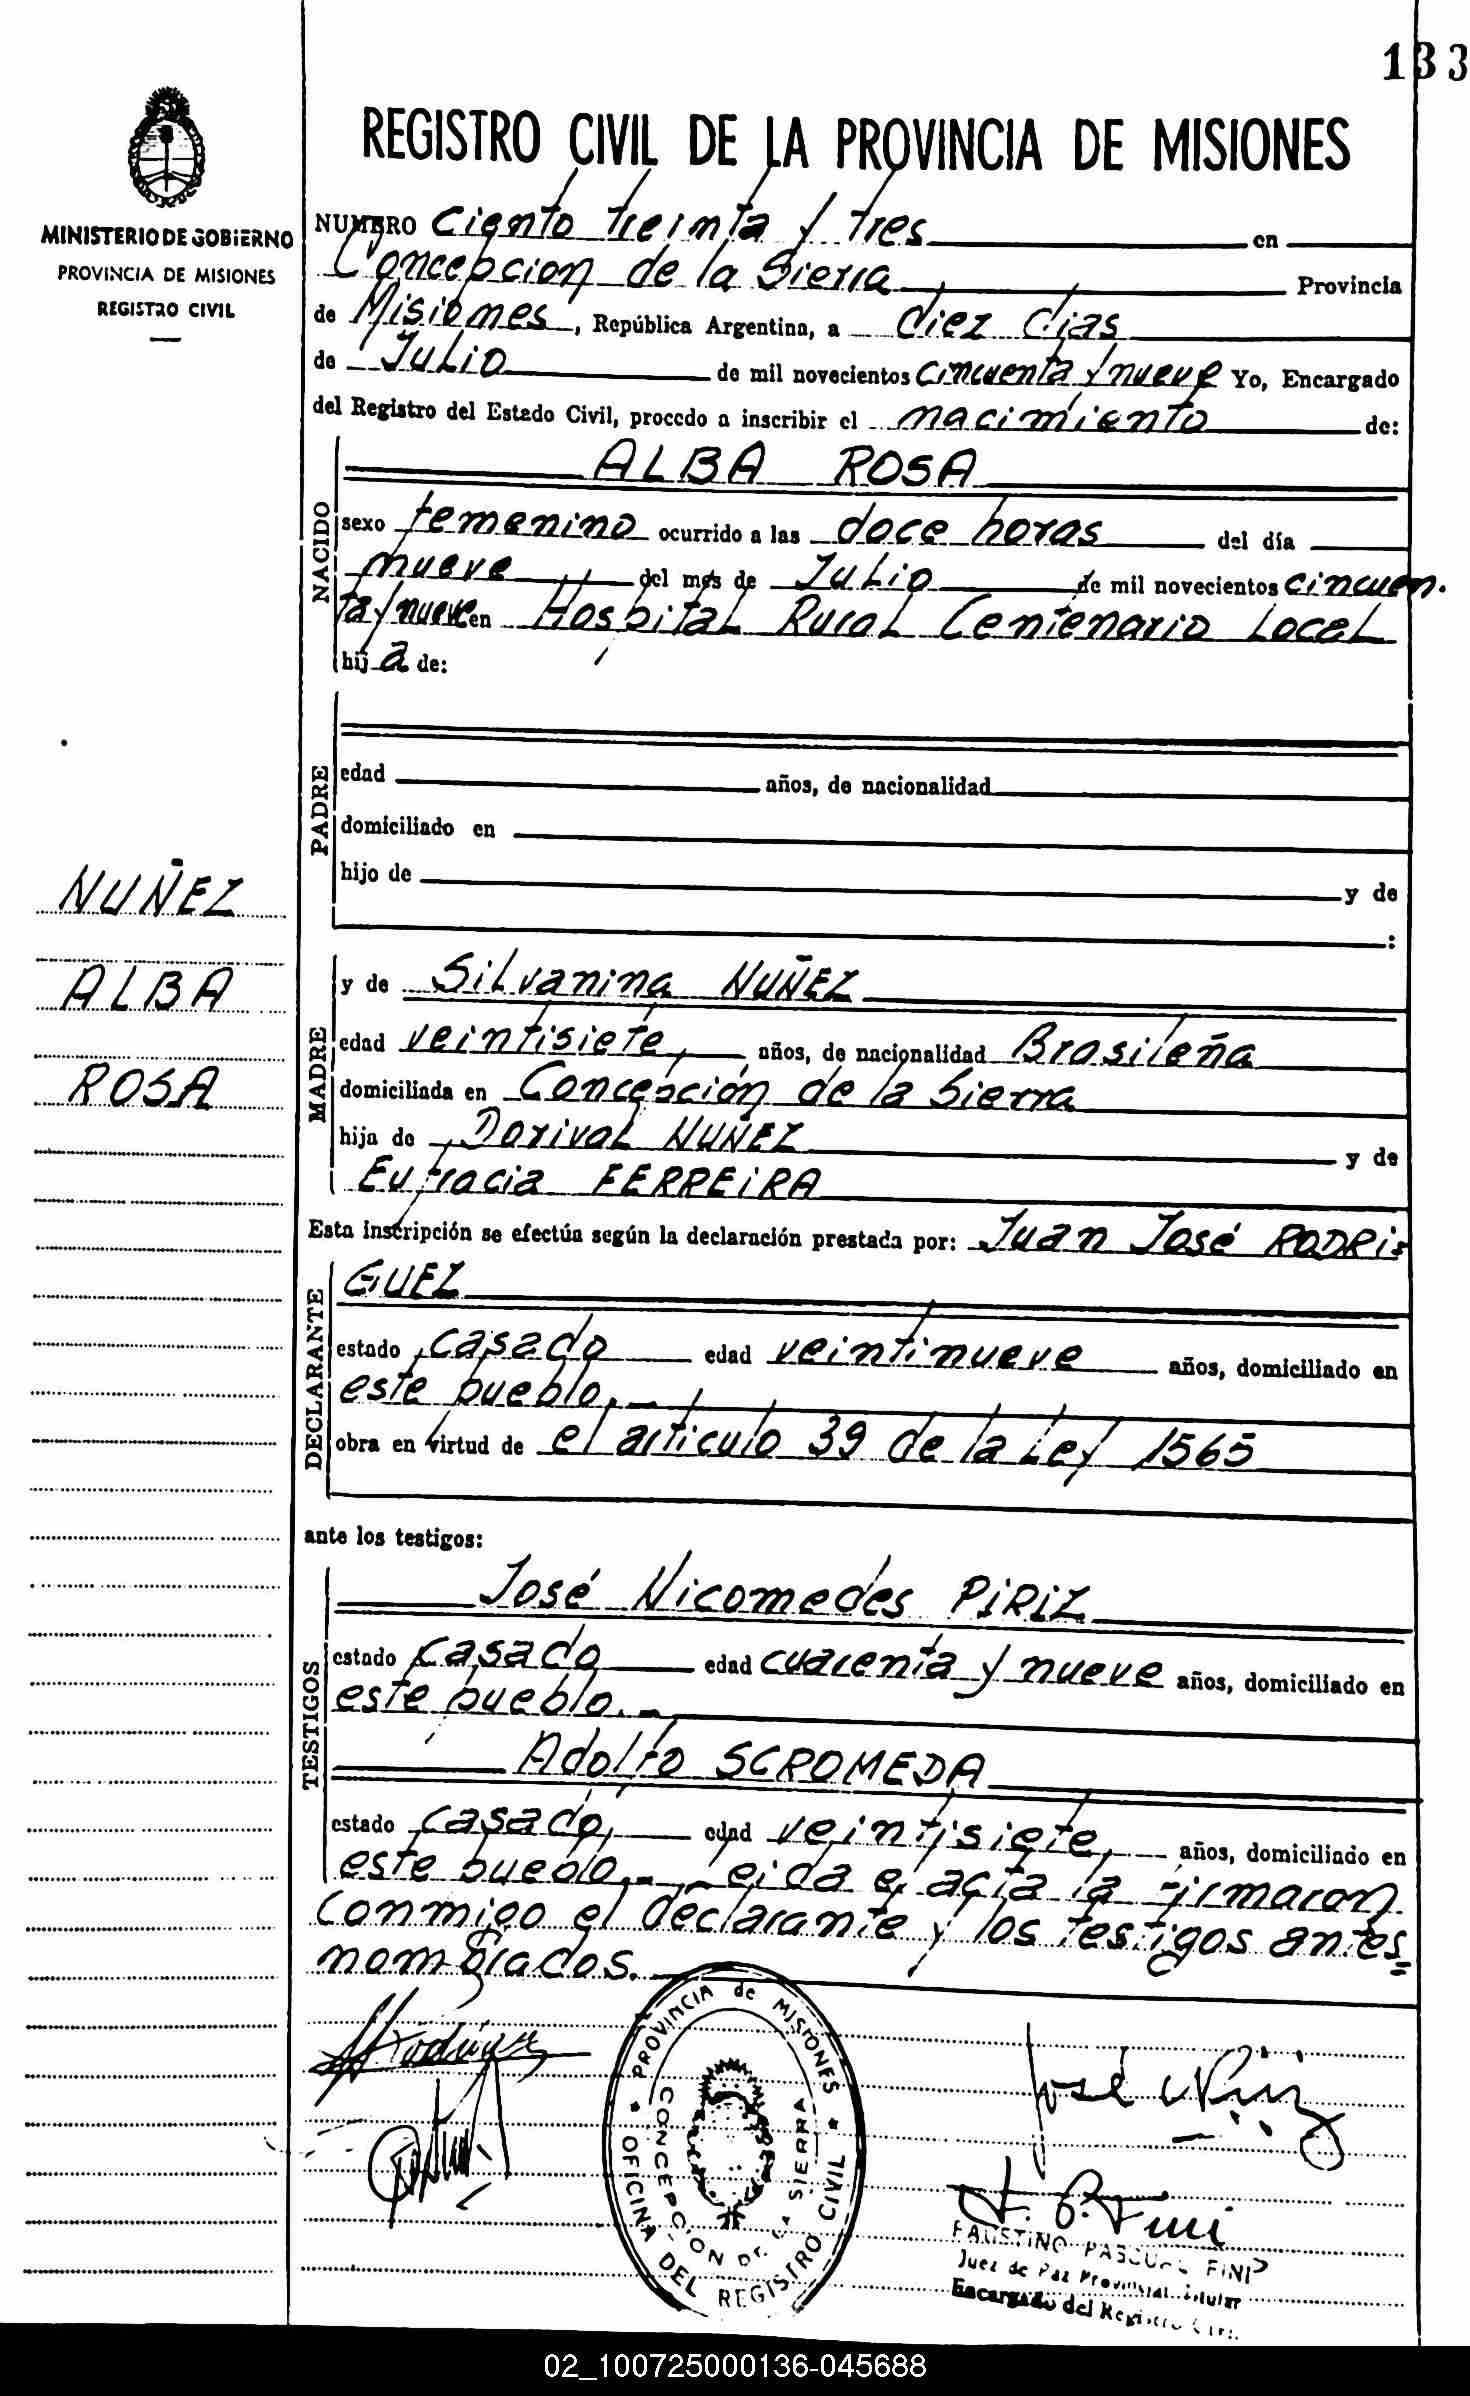 133
REGISTRO CIVIL DE LA PROVINCIA DE MISIONES
MINISTERIO DE GOBIERNO
PROVINCIA DE MISIONES
REGISTRO CIVIL
NUMERO Ciento treinta y tres en
Concepcion de la Sierra Provincia
de Misiones, República Argentina, a diez dias
de Julio de mil novecientos cincuenta y nueve Yo, Encargado
del Registro del Estado Civil, procedo a inscribir el nacimiento de:
NACIDO
ALBA ROSA
sexo femenino ocurrido a las doce horas del día
nueve del mes de Julio de mil novecientos cincuen.
ta y nueve en Hospital Rural Centenario Local
hij a de:
PADRE
edad años, de nacionalidad
domiciliado en
hijo de y de
:
NUÑEZ
ALBA
ROSA
MADRE
y de Silvanina NUÑEZ
edad veintisiete, años, de nacionalidad Brasileña
domiciliada en Concepción de la Sierra
hija de Dorival NUÑEZ y de
Eufracia FERREIRA
Esta inscripción se efectúa según la declaración prestada por: Juan José RODRI=
DECLARANTE
GUEZ
estado casado edad veintinueve años, domiciliado en
este pueblo.-
obra en virtud de el artículo 39 de la Ley 1565
ante los testigos:
TESTIGOS
José Nicomedes PIRIZ
estado casado edad cuarenta y nueve años, domiciliado en
este pueblo.-
Adolfo SCROMEDA
estado casado, edad veintisiete, años, domiciliado en
este pueblo.- Leida el acta la firmaron
conmigo el declarante y los testigos antes
nombrados.
JJRodriguez
José N Piriz
PROVINCIA de MISIONES
OFICINA DEL REGISTRO CIVIL
CONCEPCION DE LA SIERRA
F. P. Fini
FAUSTINO PASCUAL FINI
Juez de Paz Provincial Titular
Encargado del Registro Civil
02_100725000136-045688